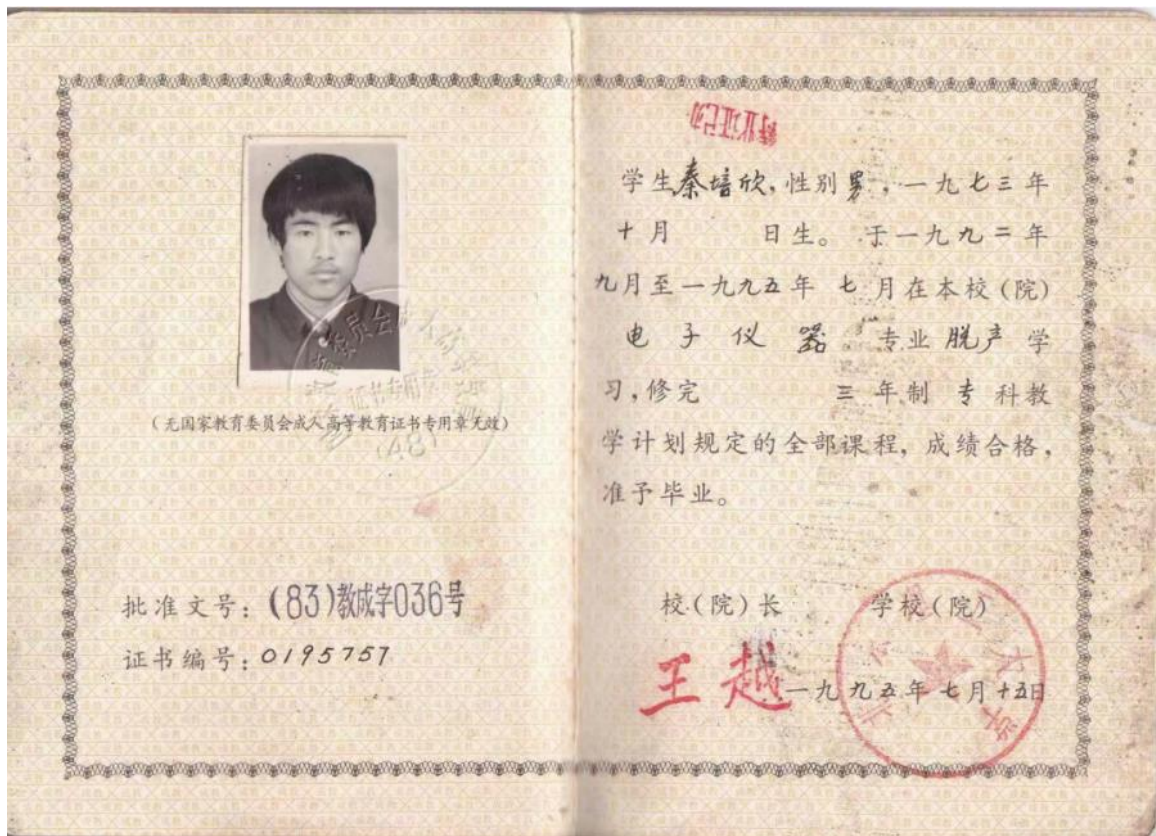 (无国家教育委员会成人高等教育证书专用章无效)
(48)
批准文号:(83)教成字036号
证书编号:0195757
学生秦培欣,性别男,一九七三年
十月 日生。于一九九二年
九月至一九九五年 七月在本校(院)
电子仪器 专业脱产学
习,修完 三年制 专科教
学计划规定的全部课程,成绩合格,
准予毕业。
校(院)长 学校(院)
王越
一九九五年七月十五日